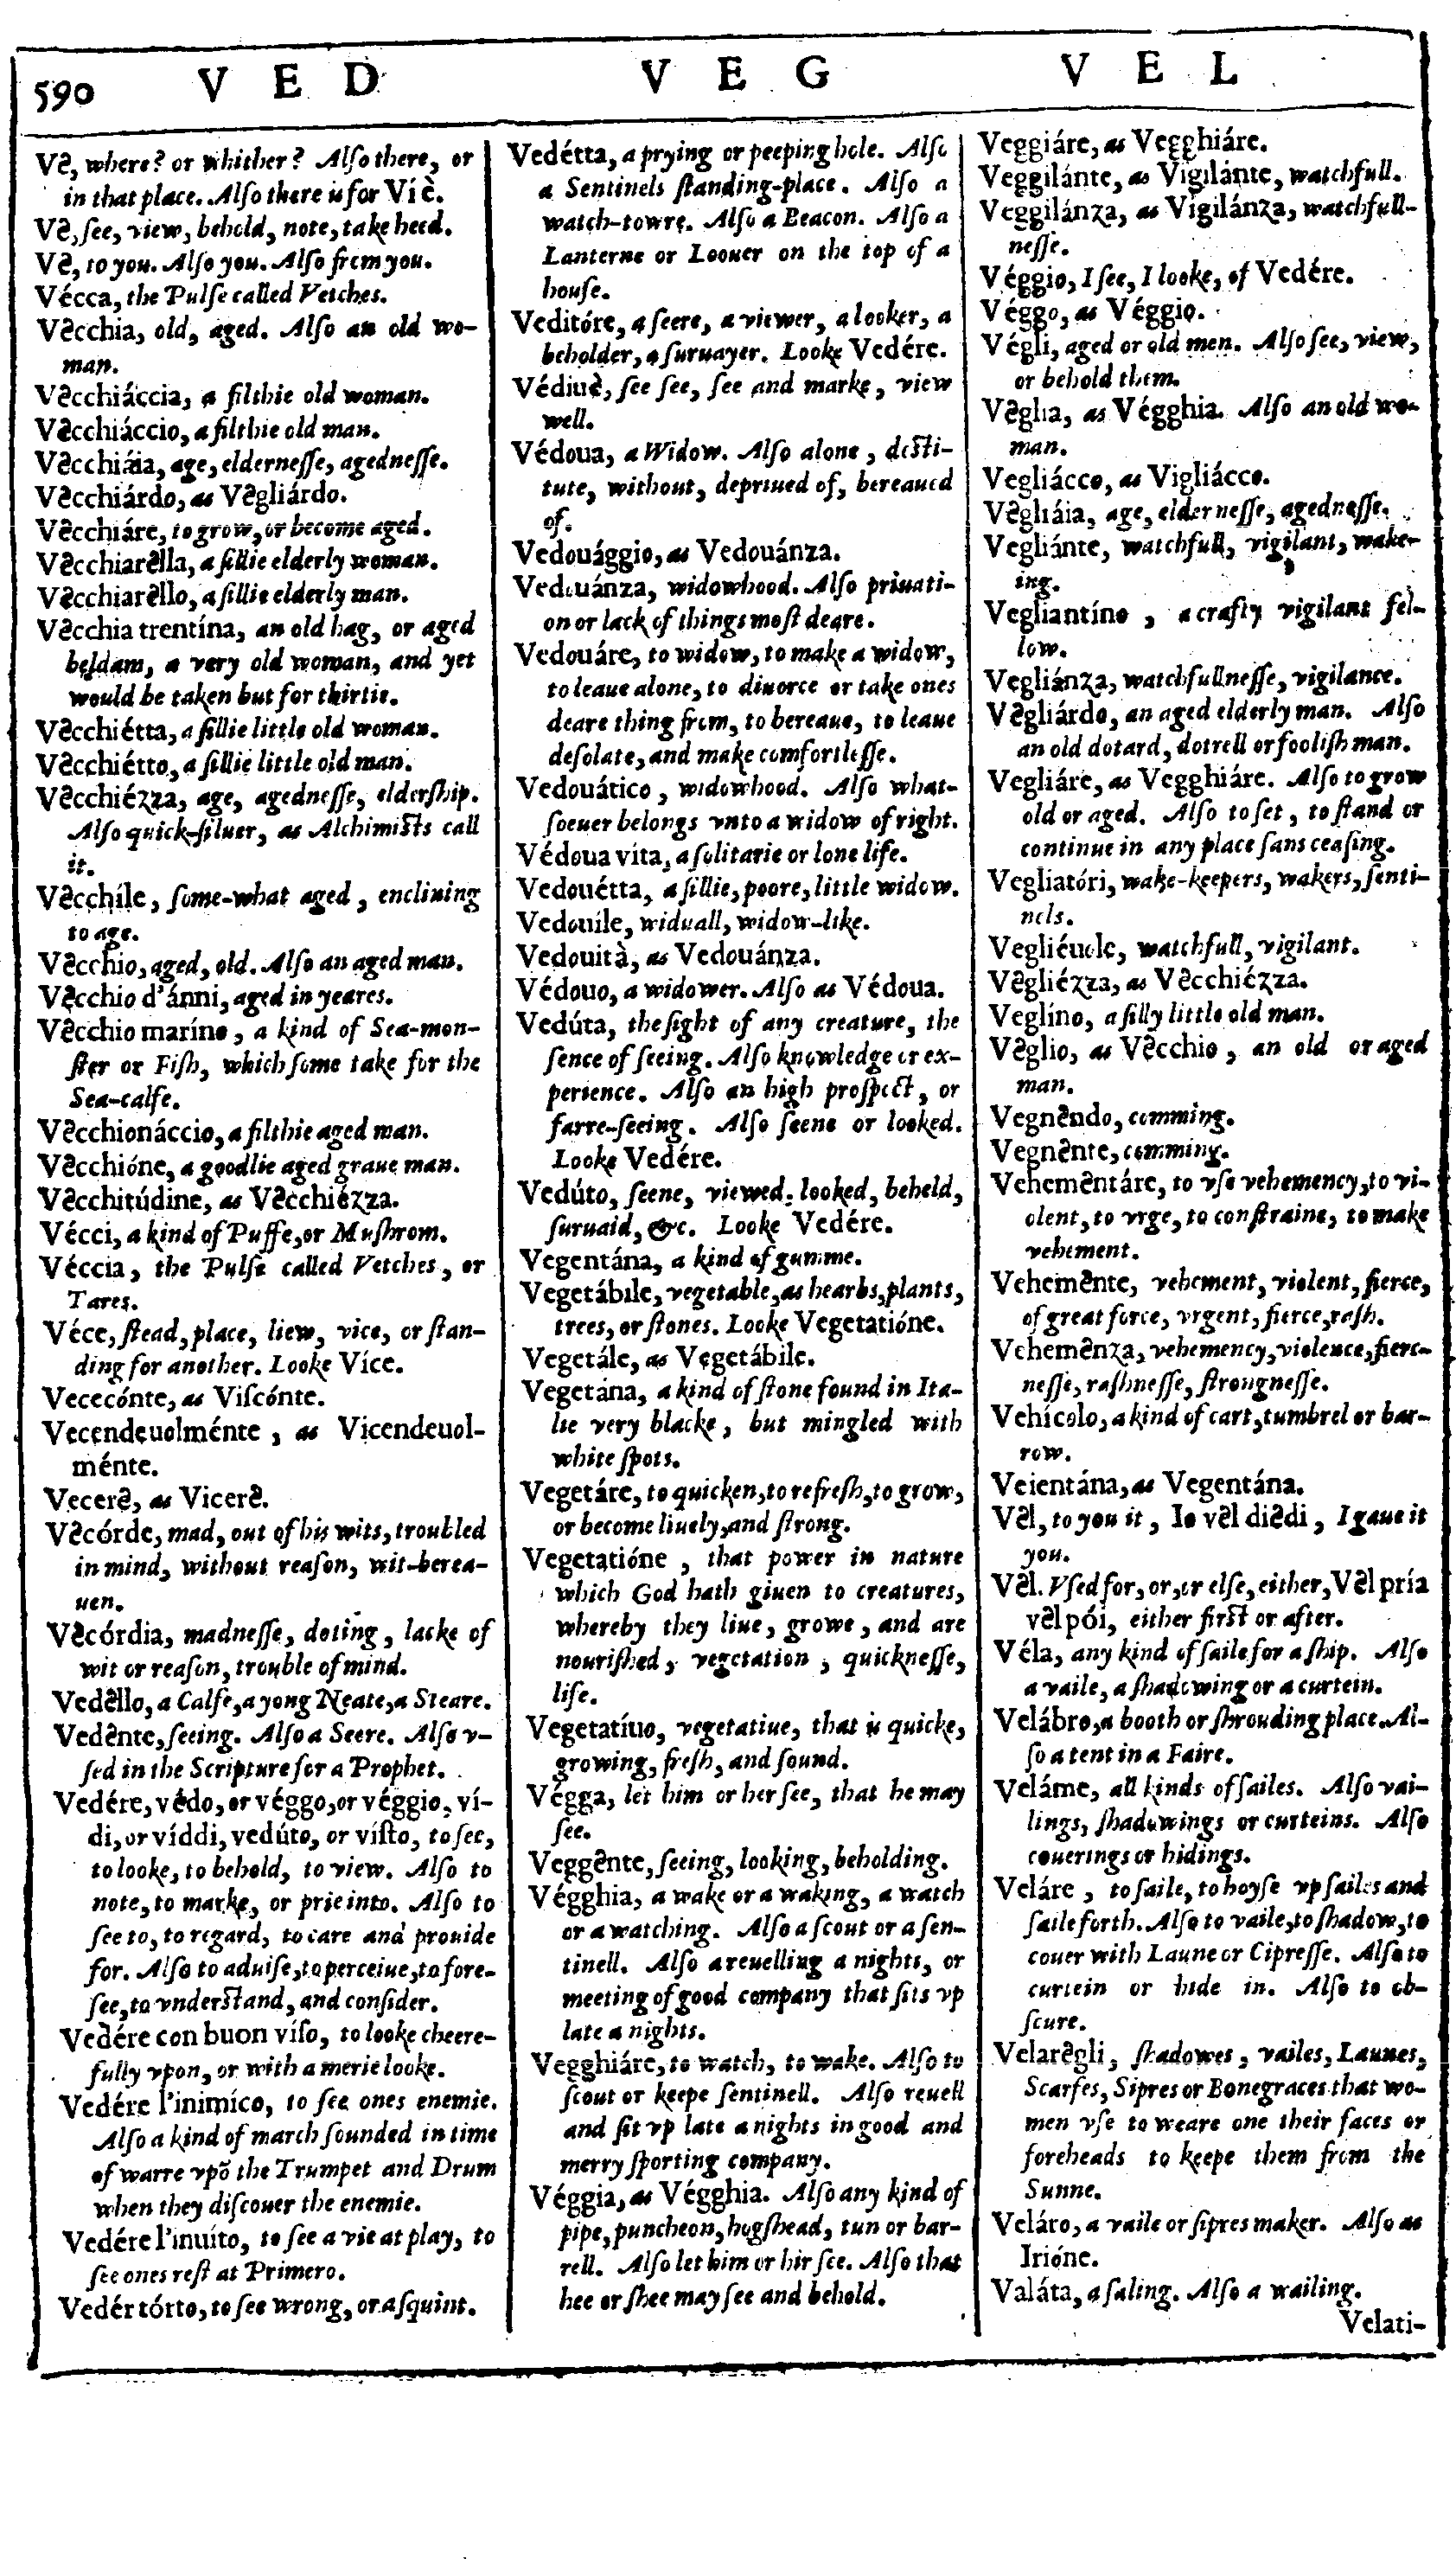 590
VED
VEG
VEL
Vê, where? or whither? Alſo there, or
in that place. Alſo there is for Víè.
Vê, ſee, view, behold, note, take heed.
Vê, to you. Alſo you. Alſo from you.
Vécca, the Pulſe called Vetches.
Vêcchia, old, aged. Alſo an old wo-
man.
Vêcchiáccia, a filthie old woman.
Vêcchiáccio, a filthie old man.
Vêcchiáia, age, elderneſſe, agedneſſe.
Vêcchiárdo, as Vêgliárdo.
Vêcchiáre, to grow, or become aged.
Vêcchiarêlla, a ſillie elderly woman.
Vêcchiarêllo, a ſillie elderly man.
Vêcchia trentína, an old hag, or aged
beldam, a very old woman, and yet
would be taken but for thirtie.
Vêcchiétta, a ſillie little old woman.
Vêcchiétto, a ſillie little old man.
Vêcchiézza, age, agedneſſe, elderſhip.
Alſo quick-ſiluer, as Alchimiſts call
it.
Vêcchíle, ſome-what aged, enclining
to age.
Vêcchio, aged, old. Alſo an aged man.
Vêcchio d'ánni, aged in yeares.
Vêcchio maríno, a kind of Sea-mon-
ſter or Fiſh, which ſome take for the
Sea-calfe.
Vêcchionáccio, a filthie aged man.
Vêcchióne, a goodlie aged graue man.
Vêcchitúdine, as Vêcchiézza.
Vécci, a kind of Puffe, or Muſhrom.
Véccia, the Pulſe called Vetches, or
Tares.
Véce, ſtead, place, liew, vice, or ſtan-
ding for another. Looke Více.
Vececónte, as Viſcónte.
Vecendeuolménte, as Vicendeuol-
ménte.
Vecerê, as Vicerê.
Vêcórde, mad, out of his wits, troubled
in mind, without reaſon, wit-berea-
uen.
Vêcórdia, madneſſe, doting, lacke of
wit or reaſon, trouble of mind.
Vedêllo, a Calfe, a yong Neate, a Steare.
Vedênte, ſeeing. Alſo a Seere. Alſo v-
ſed in the Scripture for a Prophet.
Vedére, védo, or véggo, or véggio, ví-
di, or víddi, vedúto, or víſto, to ſee,
to looke, to behold, to view. Alſo to
note, to marke, or prie into. Alſo to
ſee to, to regard, to care and prouide
for. Alſo to aduiſe, to perceiue, to fore-
ſee, to vnderſtand, and conſider.
Vedére con buon víſo, to looke cheere-
fully vpon, or with a merie looke.
Vedére l'inimíco, to ſee ones enemie.
Alſo a kind of march ſounded in time
of warre vpō the Trumpet and Drum
when they diſcouer the enemie.
Vedére l'inuíto, to ſee a vie at play, to
ſee ones reſt at Primero.
Vedér tórto, to ſee wrong, or a ſquint.
Vedétta, a prying or peeping hole. Alſo
a Sentinels ſtanding-place. Alſo a
watch-towre. Alſo a Beacon. Alſo a
Lanterne or Loouer on the top of a
houſe.
Veditóre, a ſeere, a viewer, a looker, a
beholder, a ſuruayer. Looke Vedére.
Védiuè, ſee ſee, ſee and marke, view
well.
Védoua, a Widow. Alſo alone, deſti-
tute, without, depriued of, bereaued
of.
Vedouággio, as Vedouánza.
Vedouánza, widowhood. Alſo priuati-
on or lack of things moſt deare.
Vedouáre, to widow, to make a widow,
to leaue alone, to diuorce or take ones
deare thing from, to bereaue, to leaue
deſolate, and make comfortleſſe.
Vedouático, widowhood. Alſo what-
ſoeuer belongs vnto a widow of right.
Védoua víta, a ſolitarie or lone life.
Vedouétta, a ſillie, poore, little widow.
Vedouíle, widuall, widow-like.
Vedouità, as Vedouánza.
Védouo, a widower. Alſo as Védoua.
Vedúta, the ſight of any creature, the
ſence of ſeeing. Alſo knowledge or ex-
perience. Alſo an high proſpect, or
farre-ſeeing. Alſo ſeene or looked.
Looke Vedére.
Vedúto, ſeene, viewed, looked, beheld,
ſuruaid, &c. Looke Vedére.
Vegentána, a kind of gumme.
Vegetábile, vegetable, as hearbs, plants,
trees, or ſtones. Looke Vegetatióne.
Vegetále, as Vegetábile.
Vegetána, a kind of ſtone found in Ita-
lie very blacke, but mingled with
white ſpots.
Vegetáre, to quicken, to refreſh, to grow,
or become liuely, and ſtrong.
Vegetatióne, that power in nature
which God hath giuen to creatures,
whereby they liue, growe, and are
nouriſhed, vegetation, quickneſſe,
life.
Vegetatíuo, vegetatiue, that is quicke,
growing, freſh, and ſound.
Végga, let him or her ſee, that he may
ſee.
Veggênte, ſeeing, looking, beholding.
Végghia, a wake or a waking, a watch
or a watching. Alſo a ſcout or a ſen-
tinell. Alſo a reuelling a nights, or
meeting of good company that ſits vp
late a nights.
Vegghiáre, to watch, to wake. Alſo to
ſcout or keepe ſentinell. Alſo reuell
and ſit vp late a nights in good and
merry ſporting company.
Véggia, as Végghia. Alſo any kind of
pipe, puncheon, hogſhead, tun or bar-
rell. Alſo let him or hir ſee. Alſo that
hee or ſhee may ſee and behold.
Veggiáre, as Vegghiáre.
Veggilánte, as Vigilánte, watchfull.
Veggilánza, as Vigilánza, watchfull-
neſſe.
Véggio, I ſee, I looke, of Vedére.
Véggo, as Véggio.
Végli, aged or old men. Alſo ſee, view,
or behold them.
Vêglia, as Végghia. Alſo an old wo-
man.
Vegliácco, as Vigliácco.
Vêgliáia, age, elderneſſe, agedneſſe.
Vegliánte, watchfull, vigilant, wake-
ing.
Vegliantíno, a crafty vigilant fel-
low.
Vegliánza, watchfullneſſe, vigilance.
Vêgliárdo, an aged elderly man. Alſo
an old dotard, dotrell or fooliſh man.
Vegliáre, as Vegghiáre. Alſo to grow
old or aged. Alſo to ſet, to ſtand or
continue in any place ſans ceaſing.
Vegliatóri, wake-keepers, wakers, ſenti-
nels.
Vegliéuole, watchfull, vigilant.
Vêgliézza, as Vêcchiézza.
Veglíno, a ſilly little old man.
Vêglio, as Vêcchio, an old or aged
man.
Vegnêndo, comming.
Vegnênte, comming.
Vehemêntáre, to vſe vehemency, to vi-
olent, to vrge, to conſtraine, to make
vehement.
Vehemênte, vehement, violent, fierce,
of great force, vrgent, fierce, raſh.
Vehemênza, vehemency, violence, fierc-
neſſe, raſhneſſe, ſtrongneſſe.
Vehícolo, a kind of cart, tumbrel or bar-
row.
Veientána, as Vegentána.
Vêl, to you it, Io vêl diêdi, I gaue it
you.
Vêl. Vſed for, or, or elſe, either, Vêl pría
vêl pói, either firſt or after.
Véla, any kind of ſaile for a ſhip. Alſo
a vaile, a ſhadowing or a curtein.
Velábro, a booth or ſhrouding place. Al-
ſo a tent in a Faire.
Veláme, all kinds of ſailes. Alſo vai-
lings, ſhadowings or curteins. Alſo
couerings or hidings.
Veláre, to ſaile, to hoyſe vp ſailes and
ſaile forth. Alſo to vaile, to ſhadow, to
couer with Laune or Cipreſſe. Alſo to
curtein or hide in. Alſo to ob-
ſcure.
Velarêgli, ſhadowes, vailes, Launes,
Scarfes, Sipres or Bonegraces that wo-
men vſe to weare one their faces or
foreheads to keepe them from the
Sunne.
Veláro, a vaile or ſipres maker. Alſo as
Irióne.
Valáta, a ſaling. Alſo a wailing.
Velati-